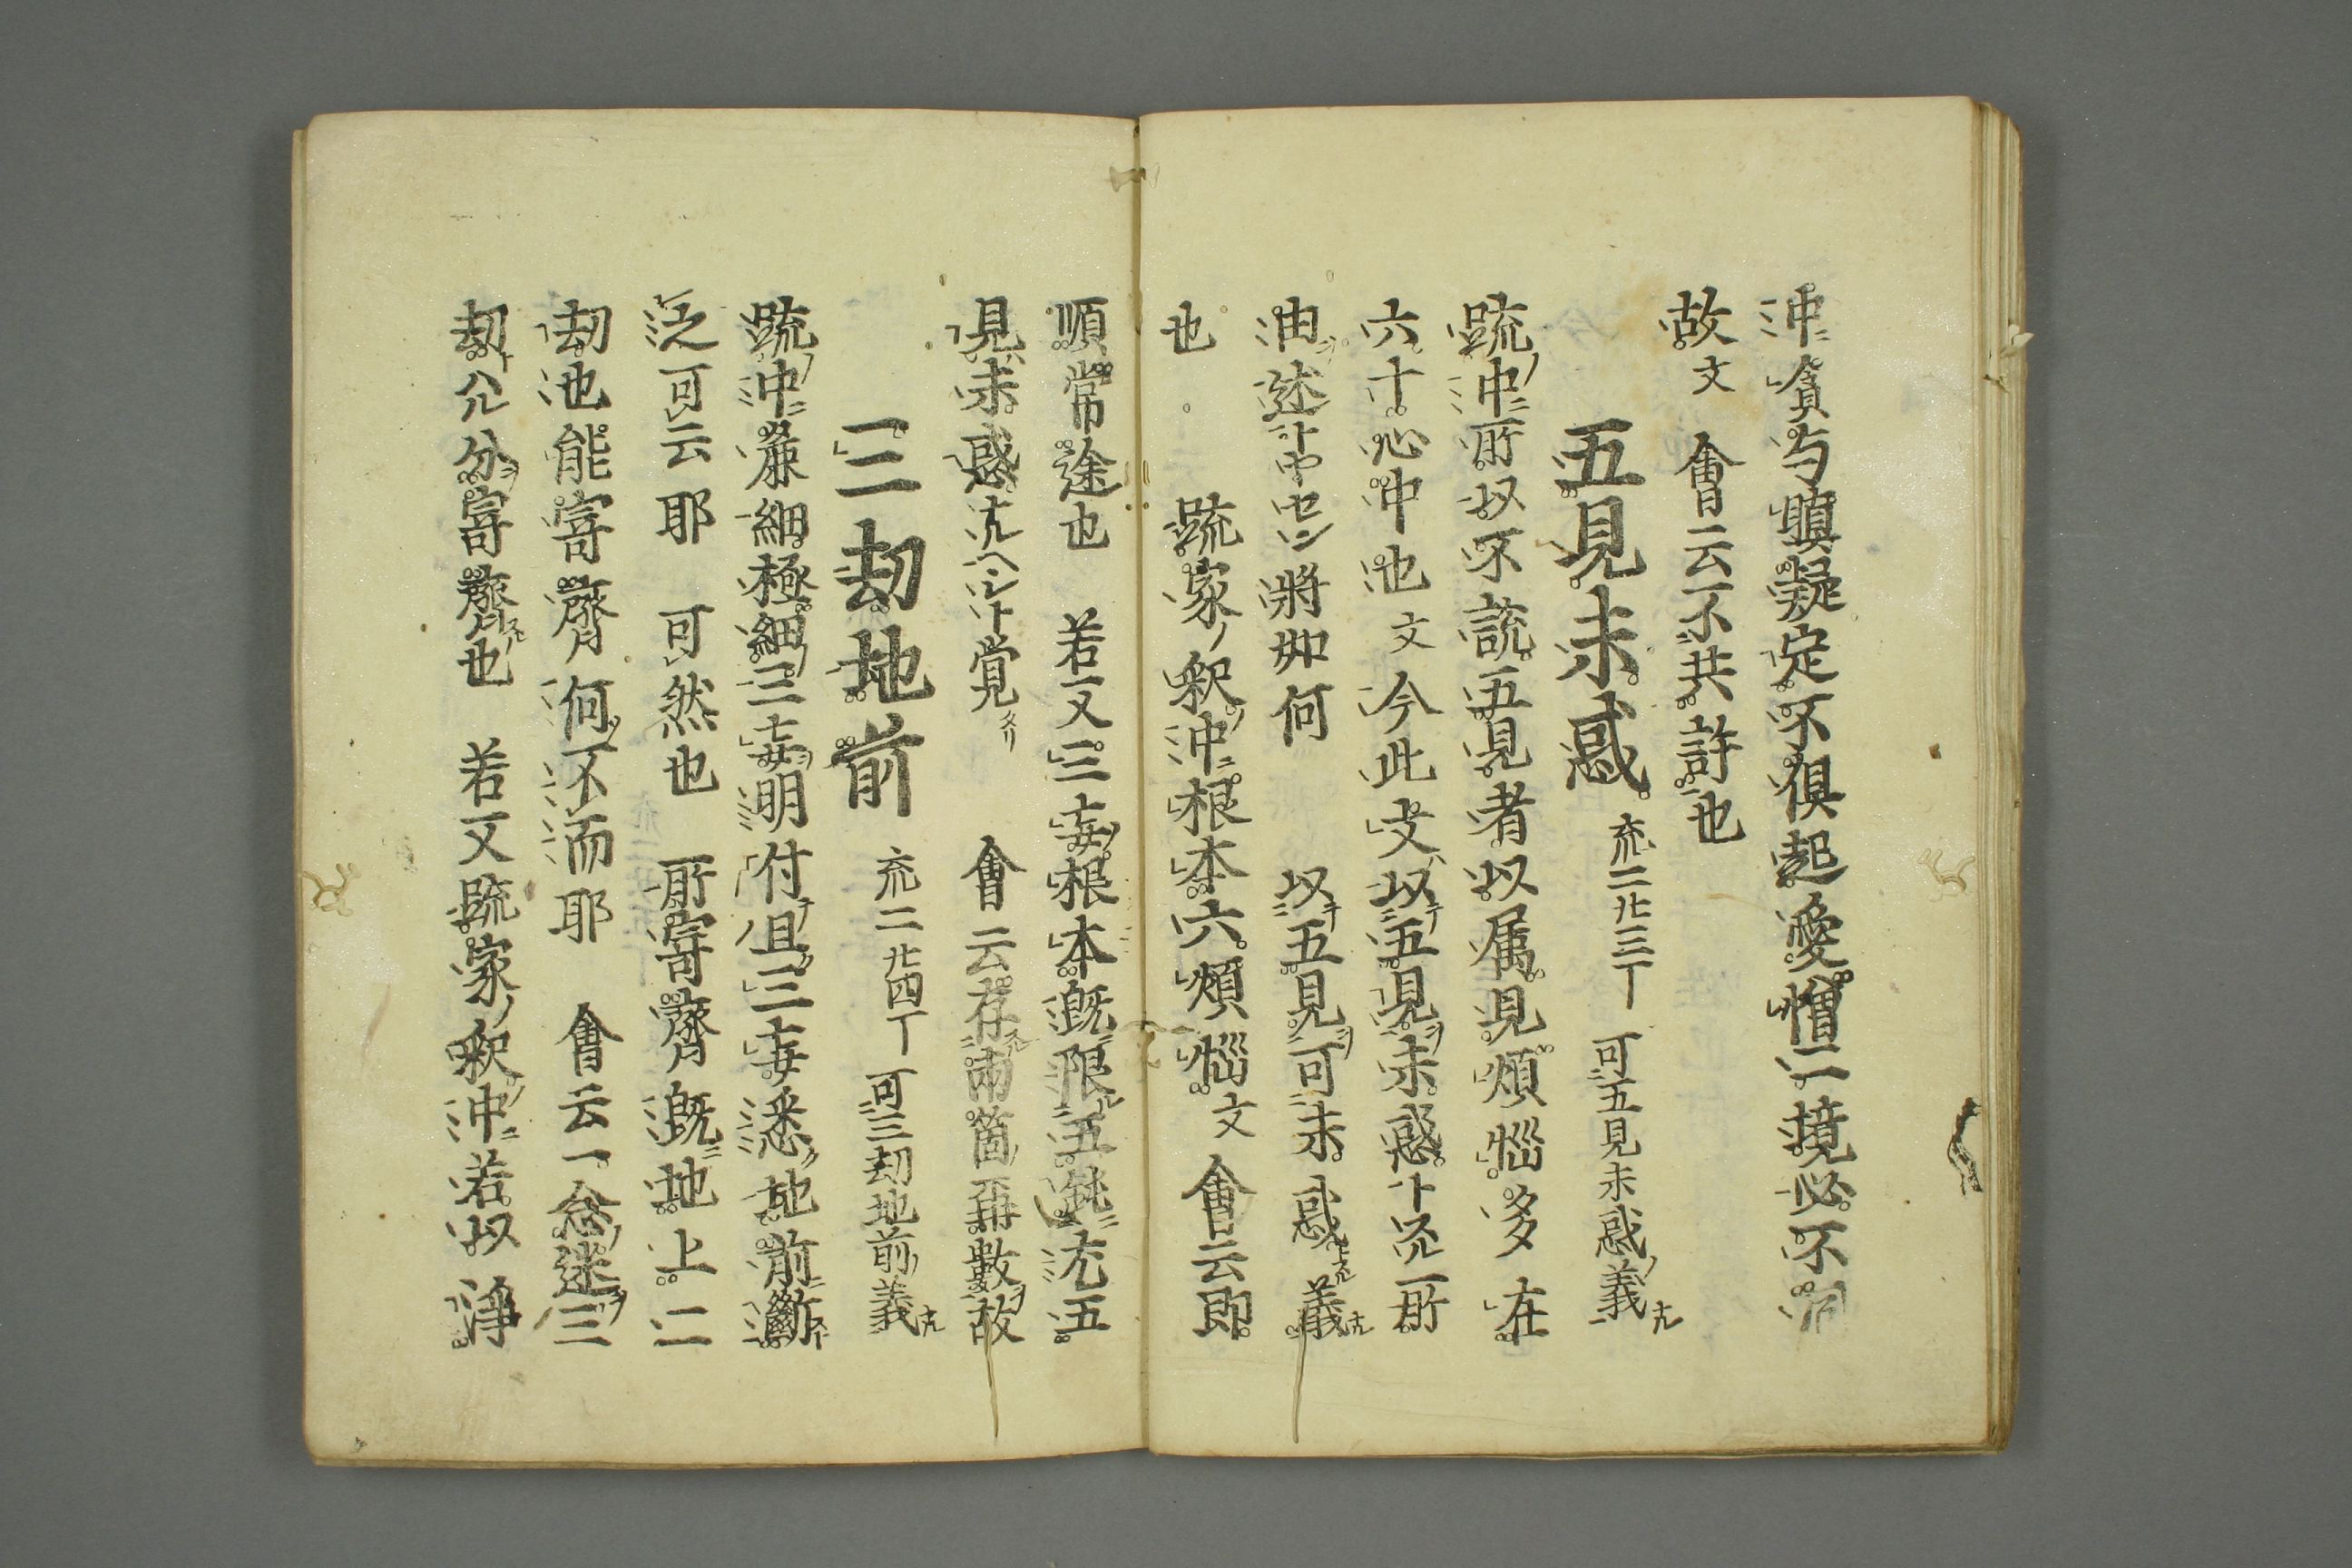 沖貪与瞋疑定不俱起愛憎二境必不同
故文　會云不共許也
五見未惑　疏二廿三丁　可五見未惑義
疏沖所以不說五見者以属見煩惱多在
六十心中也文今此文以五見未惑所
由述將如何　以五見可未惑義
也　疏家釈沖根本六煩惱文會云即
順常途也　若又三妄根本既限五鈍況五
見未惑覚　會云存兩箇再數故
三劫地前　疏二廿四丁　可三劫地前義
疏沖麁細極細三妄明付且三妄悉地前断
泛可云耶　可然也　所寄齊既地上二
劫也能寄齊何不而耶　會云一念迷三
劫分寄齊也　若又疏家釈沖若以淨